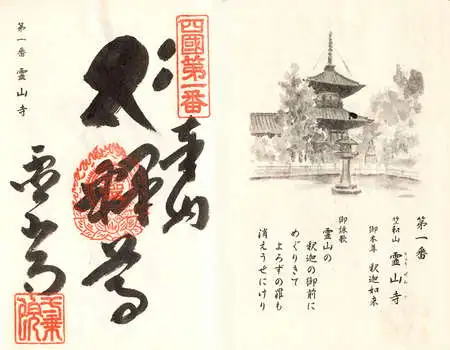 第一番
竺和山 霊山寺
御本尊 釈迦如来
御詠歌
霊山の
釈迦の御前に
めぐりきて
よろずの罪も
消えうせにけり
四國第一番
奉納
霊山寺
第一番 霊山寺